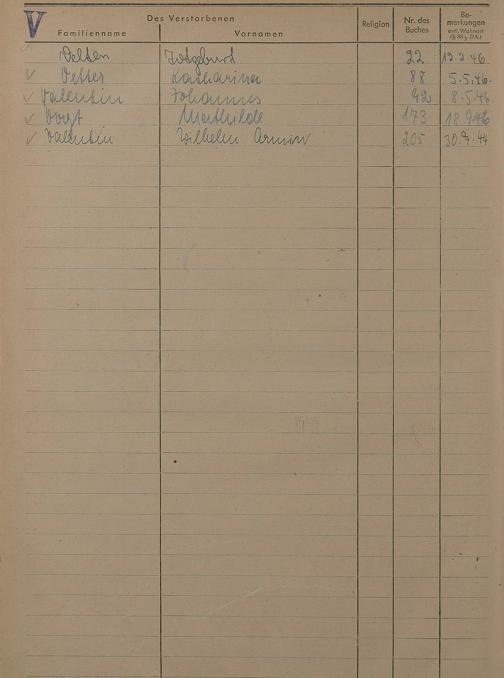 V
Des Verstorbenen
Familienname Vornamen Religion Nr. des Buches Be-merkungen evtl. Wohnort (§ 88 g. DA.)
Velten Totgeburt 22 12.2.46
✓ Vetter Katharina 88 5.5.46.
✓ Valentin Johannes 92 8.5.46
✓ Vogt Mathilde 173 18.9.46
✓ Valentin Wilhelm Armin 205 30.9.44